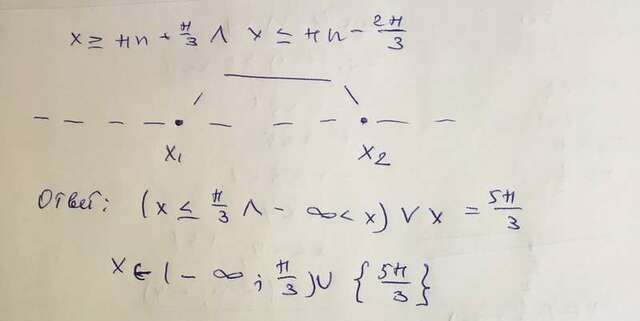 x ≥ πn + π/3 ∧ x ≤ πn - 2π/3
x₁ x₂
Ответ: (x ≤ π/3 ∧ - ∞ < x) ∨ x = 5π/3
x ∈ (- ∞ ; π/3) ∪ {5π/3}